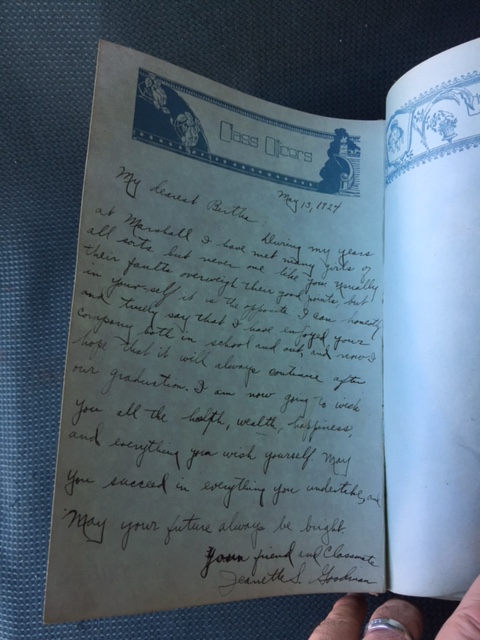 Class Officers
May 13, 1924
My dearest Bertha
During my years
at Marshall I have met many girls of
all sorts but never one like you, usually
their faults overweigh their good points, but
in yourself it is the opposite. I can honestly
and truely say that I have enjoyed your
company both in school and out, and now I
hope that it will always continue after
our graduation. I am now going to wish
you all the health, wealth, happiness,
and everything you wish yourself. May
you succeed in everything you undertake, and
May your future always be bright.
Your friend and Classmate
Jeanette S. Goodman